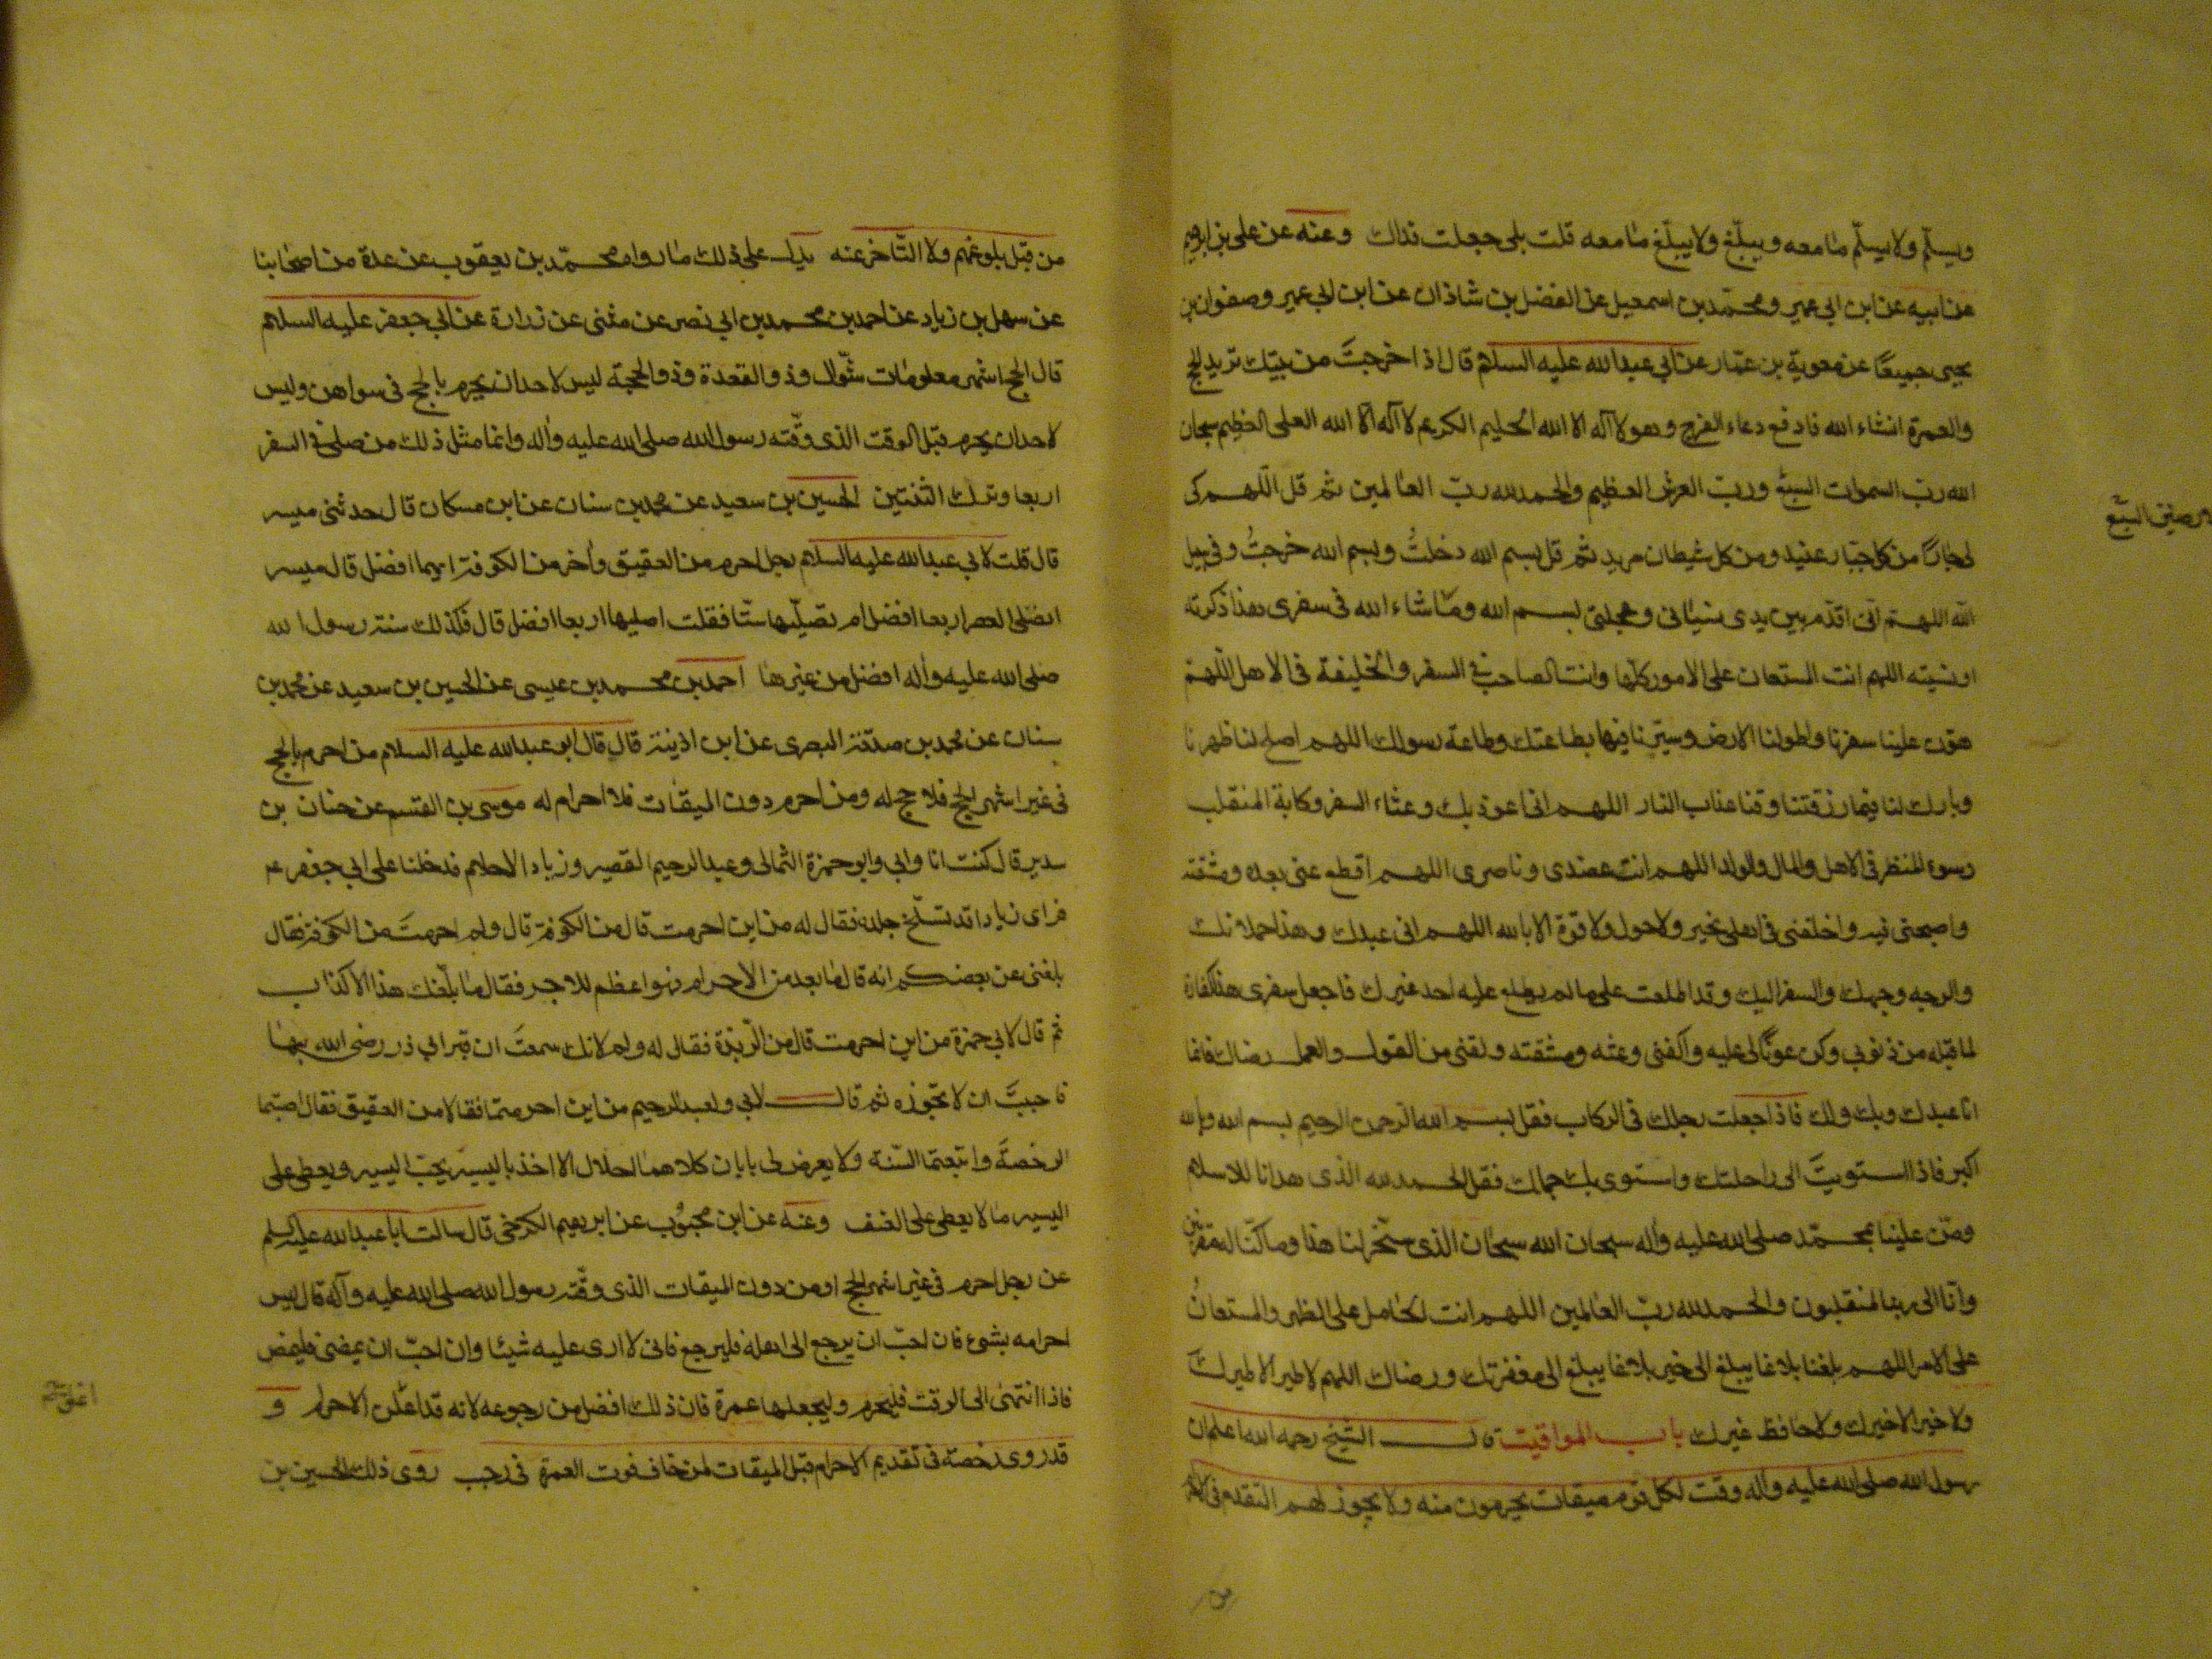 ويسلّم ولا يسلّم ما معه ويبلّغ ولا يبلّغ ما معه قلت بلى جعلت فداك وعنه عن على بن ابرهيم
عن ابيه عن ابن ابى عمير ومحمّد بن اسمعيل عن الفضل بن شاذان عن ابن ابى عمير وصفوان بن
يحيى جميعًا عن معوية بن عمّار عن ابى عبد الله عليه السلام قال اذا خرجتَ من بيتك تريد الحج
والعمرة انشاء الله فادع دعاء الفرج وهو لا آله الا الله الحليم الكريم لا آله الا الله العلى العظيم سبحان
الله ربّ السموات السبع وربّ العرش العظيم والحمد لله ربّ العالمين ثم قل اللّهم كن
لى جارًا من كل جبّار عنيد ومن كل شيطان مريد ثم قل بسم الله دخلتُ وبسم الله خرجتُ وفى سبيل
الله اللهم انى اقدّم بين يدى نسيانى وعجلتى بسم الله وما شاء الله فى سفرى هذا ذكرته
او نسيته اللهم انت المستعان على الامور كلّها وانت الصاحب فى السفر والخليفة فى الاهل اللّهمّ
هوّن علينا سفرنا واطو لنا الارض وسيّرنا فيها بطاعتك وطاعة رسولك اللهم اصلح لنا ظهرنا
وبارك لنا فيما رزقتنا وقنا عذاب النار اللهم انى اعوذ بك وعثاء السفر وكابة المنقلب
وسوء المنظر فى الاهل والمال والولد اللهم انت عضدى وناصرى اللهم اقطع عنى بعده ومشقته
واصحبنى فيه واخلفنى فى اهلى بخير ولا حول ولا قوة الا بالله اللهم انى عبدك وهذا حملانك
والوجه وجهك والسفر اليك وقد اطلعت على ما لم يطلع عليه احد غيرك فاجعل سفرى هذا كفارة
لما قبله من ذنوبى وكن عونًا لى عليه واكفنى وعثه ومشقته ولقنى من القول والعمل رضاك فانما
انا عبدك وبك ولك فاذا جعلت رجلك فى الركاب فقل بسم الله الرحمن الرحيم بسم الله وبالله
اكبر فاذا استويتَ الى راحلتك واستوى بك حملك فقل الحمد لله الذى هدانا للاسلام
ومنّ علينا بمحمّد صلى الله عليه وآله سبحان الله سبحان الذى سخّر لنا هذا وما كنّا له مقرنين
وانّا الى ربنا لمنقلبون والحمد لله ربّ العالمين اللهم انت الحامل على الظهر والمستعانُ
على الامر اللهم بلغنا بلاغا يبلغ الى خير بلاغا يبلغ الى مغفرتك ورضاك اللهم لا طير الا طيرك
ولا خير الا خيرك ولا حافظ غيرك باب المواقيت قال الشيخ رحمه الله اعلم ان
رسول الله صلى الله عليه وآله وقت لكل قوم ميقات يحرمون منه ولا يجوز لهم التقدم فى
السبع
من قبل بلوغهم ولا التّاخر عنه يدل على ذلك ما رواه محمّد بن يعقوب عن عدة من اصحابنا
عن سهل بن زياد عن احمد بن محمد بن ابى نصر عن مثنى عن زرارة عن ابى جعفر عليه السلام
قال الحج اشهر معلومات شّوال وذو القعدة وذو الحجة ليس لاحد ان يحرم بالحج فى سواهن وليس
لاحد ان يحرم قبل الوقت الذى وقّته رسول الله صلى الله عليه وآله وانما مثل ذلك من صلى فى السفر
اربعا وترك الثنتين الحسين بن سعيد عن محمد بن سنان عن ابن مسكان قال حدثنى ميسر
قال قلت لابى عبد الله عليه السلام رجل احرم من العقيق وآخر من الكوفة ايهما افضل قال ميسر
اتصلى العصر اربعا افضل ام تصلّيها ستّا فقلت اصليها اربعا افضل قال فكذلك سنة رسول الله
صلى الله عليه وآله افضل من غيرها احمد بن محمد بن عيسى عن الحسين بن سعيد عن محمد بن
سنان عن محمد بن صدقة البصرى عن ابن اذينة قال قال ابو عبد الله عليه السلام من احرم بالحج
فى غير اشهر الحج فلا حج له ومن احرم دون الميقات فلا احرام له موسى بن القسم عن حنان بن
سدير قال كنت انا وابى وابو حمزة الثمالى وعبد الرحيم القصير وزياد الاحلام فدخلنا على ابى جعفر عم
فراى زيادا قد تسلّخ جلده فقال له من اين احرمت قال من الكوفة قال ولم احرمتَ من الكوفة فقال
بلغنى عن بعضكم انه قال ما بعد من الاحرام فهو اعظم للاجر فقال ما بلّغك هذا الا كذاب
ثم قال لابى حمزة من اين احرمت قال من الرّبذة فقال له ولم لانك سمعتَ ان قبر ابى ذر رضى الله بها
فاحببتَ ان لا تجوزه ثم قال لابى ولعبد الرحيم من اين احرمتما فقالا من العقيق فقال اصبتما
الرخصةَ واتبعتما السّنة ولا يعرض لى بابان كلاهما حلال الا اخذ باليسير يحبّ اليسير ويعطى على
اليسير ما لا يعطى على العنف وعنه عن ابن محبوُب عن ابرهيم الكرخى قال سالت ابا عبد الله عليه السلم
عن رجل احرم فى غير اشهر الحج او من دون الميقات الذى وقّته رسول الله صلى الله عليه وآله قال ليس
احرامه بشىء فان احبّ ان يرجع الى اهله فليرجع فانى لا ارى عليه شيئا وان احبّ ان يمضى فليمض
فاذا انتهى الى الوقت فليحرم وليجعلها عمرة فان ذلك افضل من رجوعه لانه قد اعلن الاحرام و
قد روى رخصة فى تقديم الاحرام قبل الميقات لمن خاف فوت العمرة فى رجب روى ذلك الحسين بن